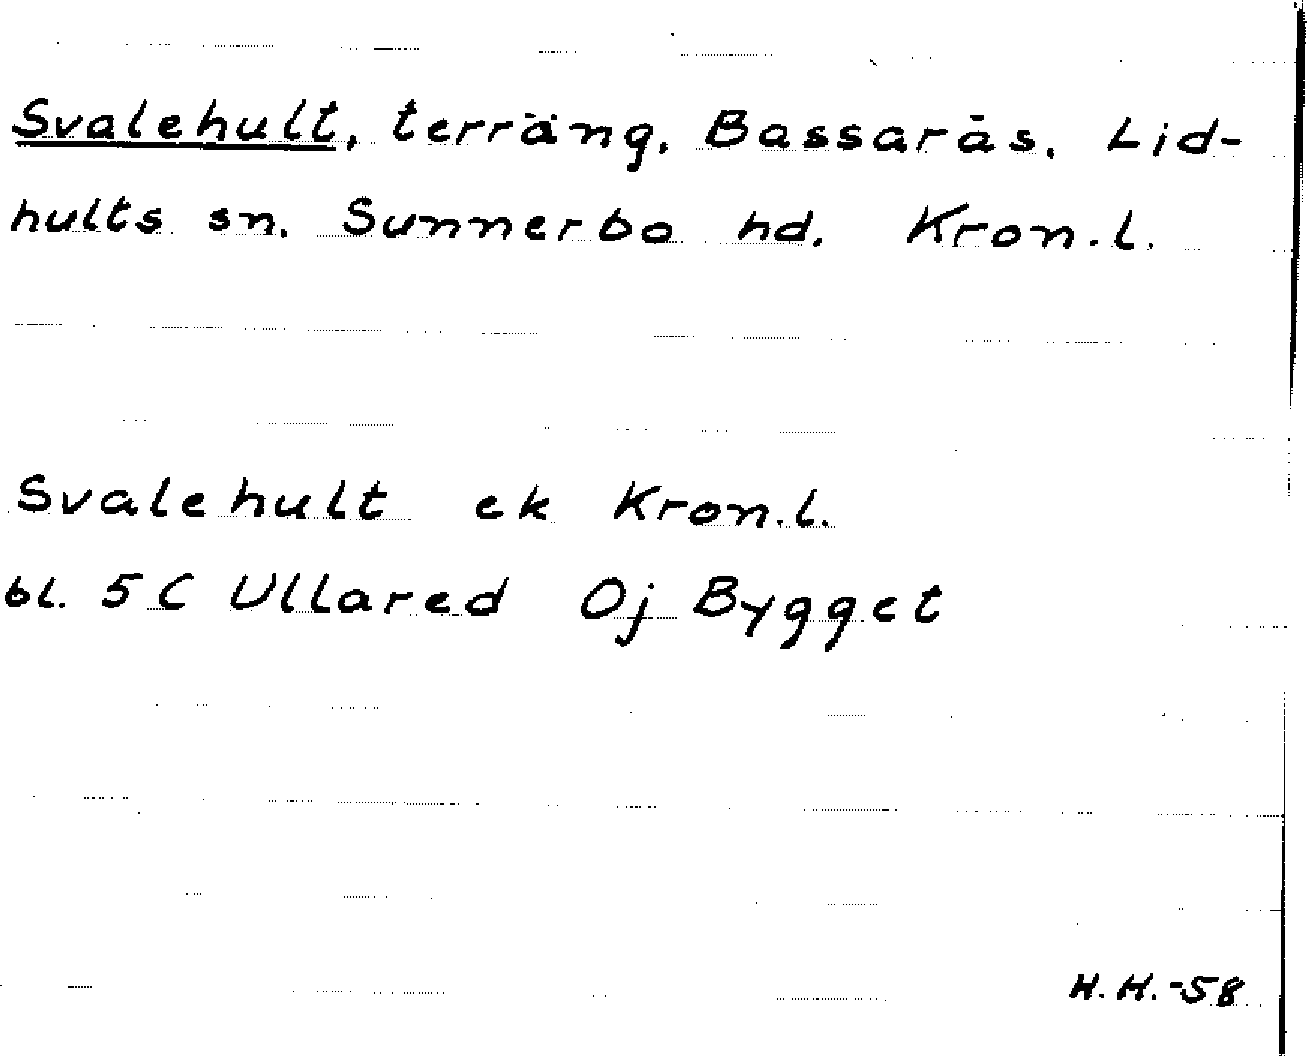 Svalehult, terräng, Bassarås, Lid-
hults sn. Sunnerbo hd. Kron.l.
Svalehult ek Kron.l.
bl. 5 C Ullared Oj Bygget
H. H. -58